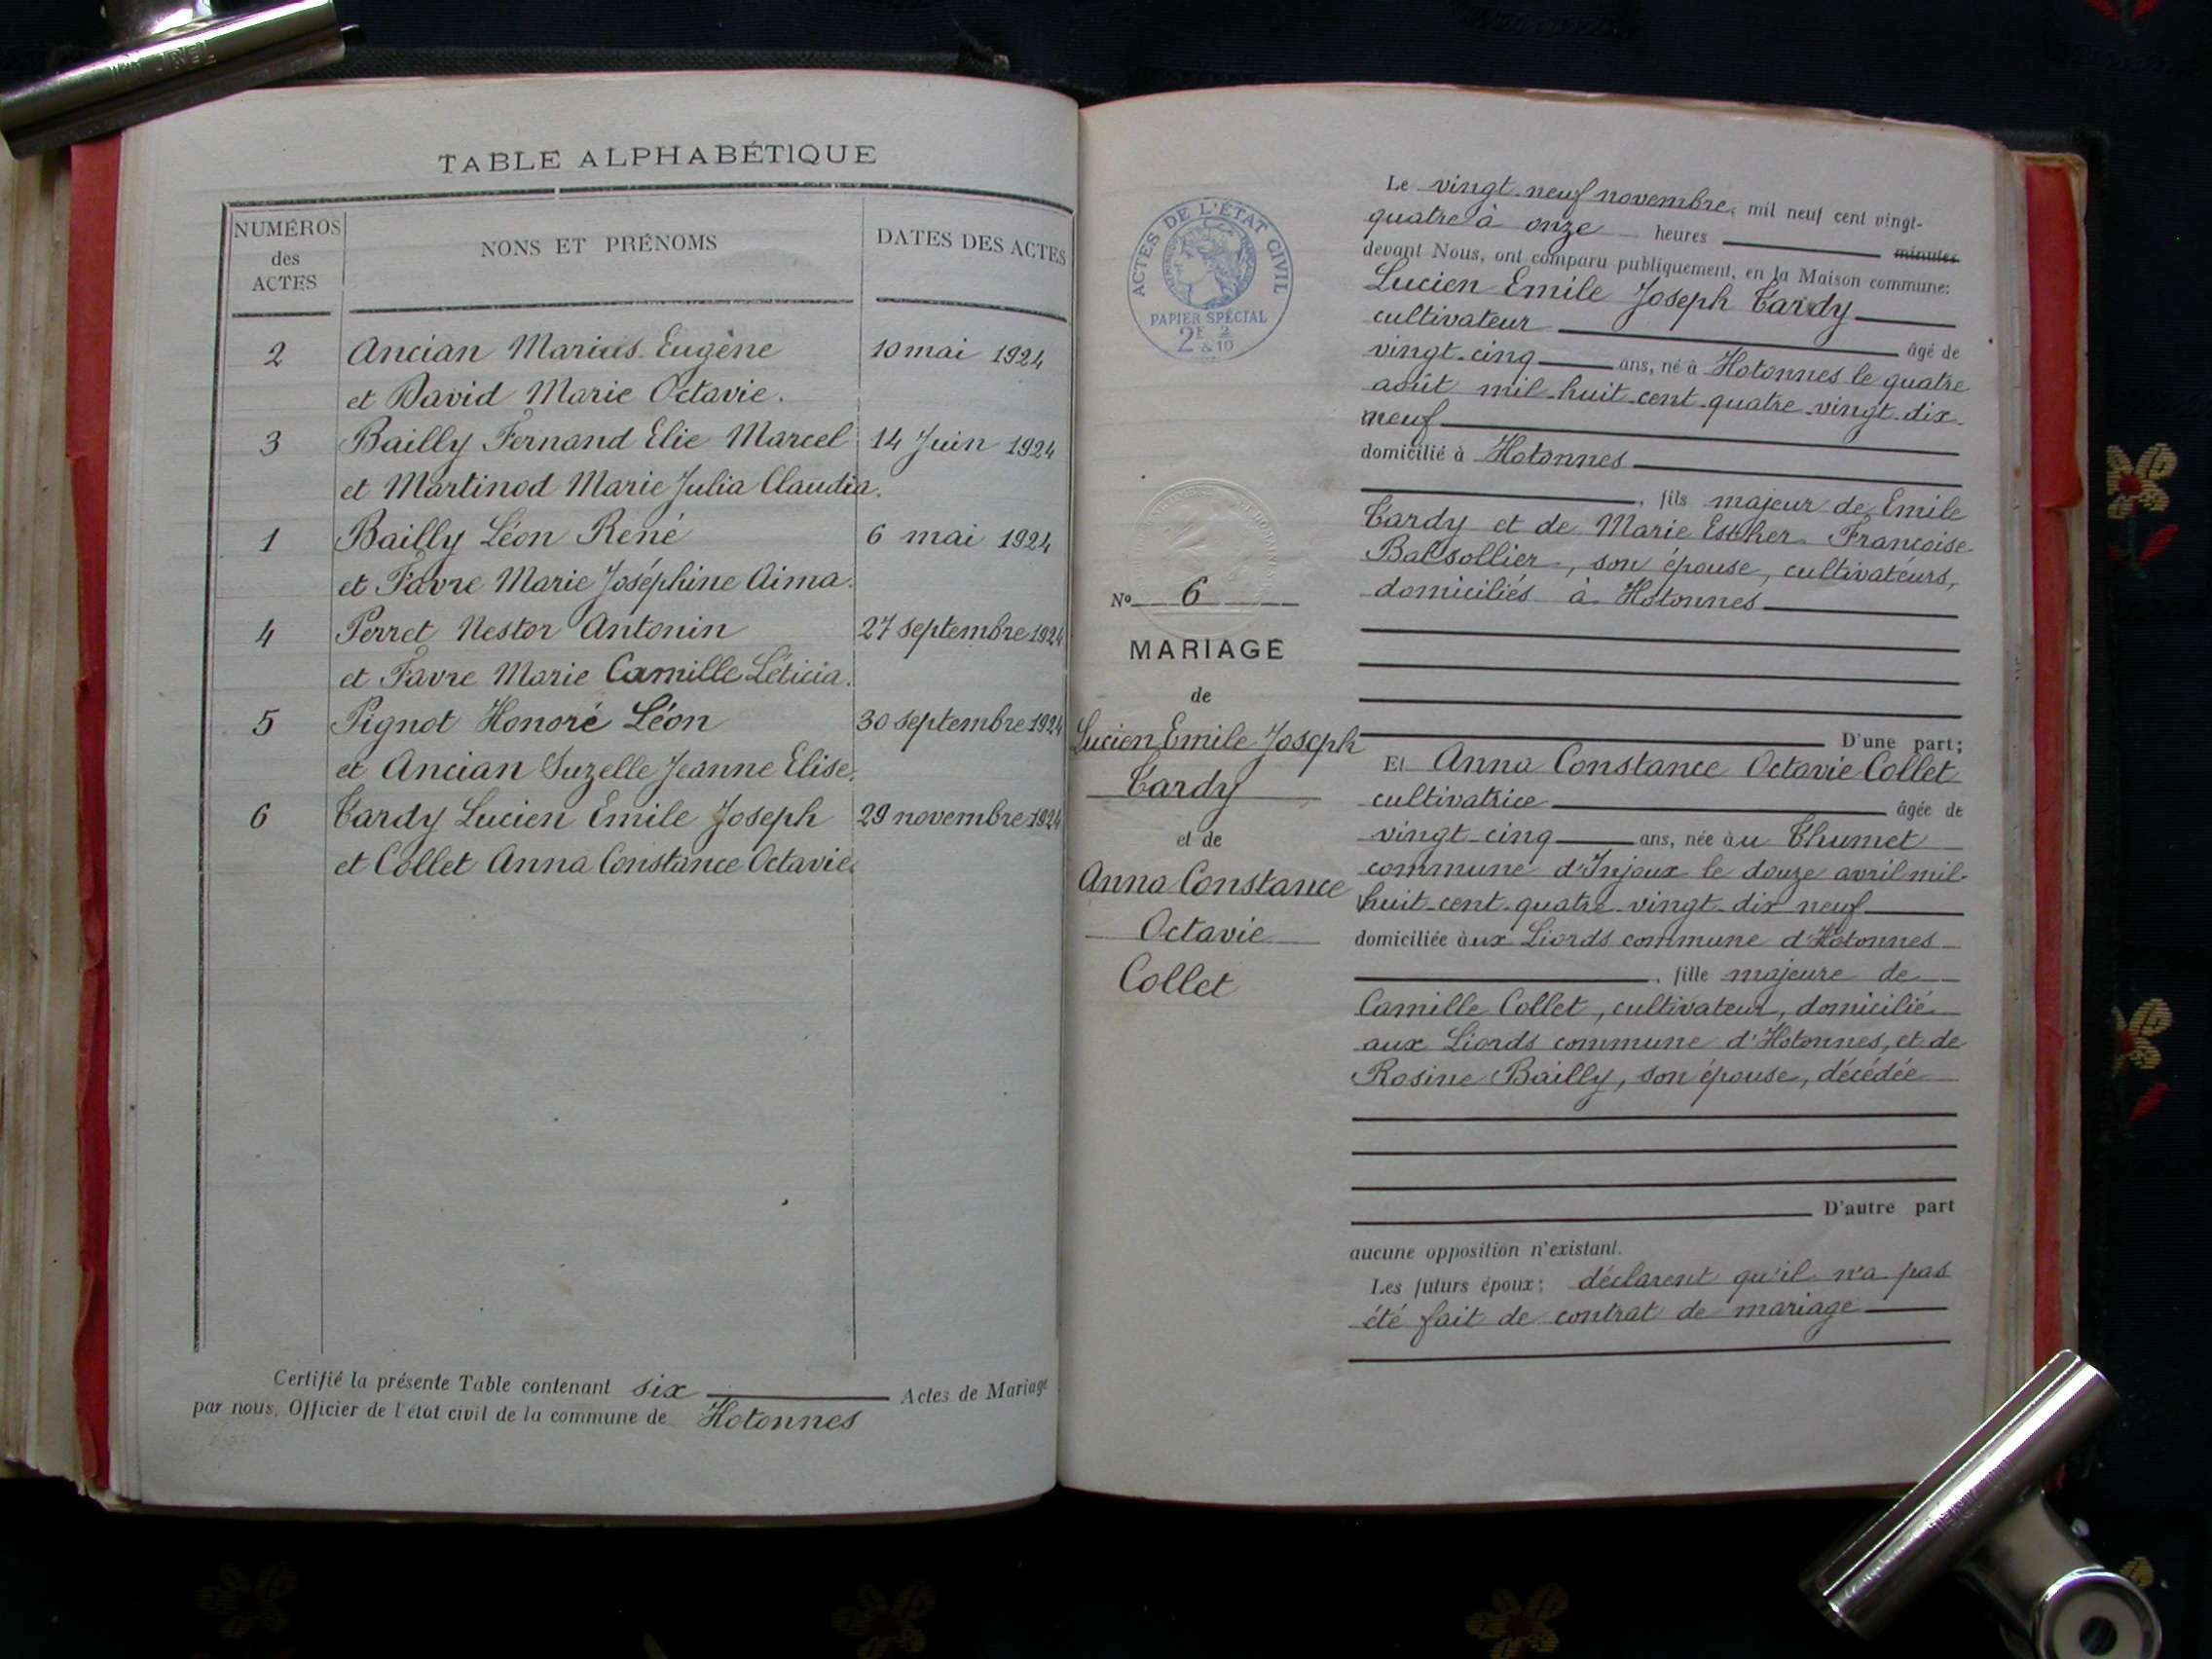 TABLE ALPHABÉTIQUE
NUMÉROS
des
ACTES
NONS ET PRÉNOMS
DATES DES ACTES
2 Ancian Marius Eugène 10 mai 1924
et David Marie Octavie.
3 Bailly Fernand Elie Marcel 14 Juin 1924
et Martinod Marie Julia Claudia.
1 Bailly Léon René 6 mai 1924
et Favre Marie Joséphine Aima.
4 Perret Nestor Antonin 27 septembre 1924
et Favre Marie Camille Léticia.
5 Pignot Honoré Léon 30 septembre 1924
et Ancian Suzelle Jeanne Elise.
6 Tardy Lucien Emile Joseph 29 novembre 1924
et Collet Anna Constance Octavie.
Certifié la présente Table contenant six Actes de Mariage
par nous, Officier de l'état civil de la commune de Hotonnes
ACTES DE L'ÉTAT CIVIL
PAPIER SPÉCIAL
2E 2
& 10
No 6
MARIAGE
de
Lucien Emile Joseph
Tardy
et de
Anna Constance
Octavie
Collet
Le vingt-neuf novembre, mil neuf cent vingt-
quatre à onze heures minutes
devant Nous, ont comparu publiquement, en la Maison commune:
Lucien Emile Joseph Tardy
cultivateur âgé de
vingt-cinq ans, né à Hotonnes le quatre
août mil-huit-cent-quatre-vingt-dix-
neuf
domicilié à Hotonnes
, fils majeur de Emile
Tardy et de Marie Esther Françoise
Balsollier, son épouse, cultivateurs,
domiciliés à Hotonnes
D'une part;
Et Anna Constance Octavie Collet
cultivatrice âgée de
vingt-cinq ans, née àu Thumet
commune d'Injoux le douze avril mil-
huit-cent-quatre-vingt-dix-neuf
domiciliée àux Liords commune d'Hotonnes
, fille majeure de
Camille Collet, cultivateur, domicilié
aux Liords commune d'Hotonnes, et de
Rosine Bailly, son épouse, décédée
D'autre part
aucune opposition n'existant.
Les futurs époux; déclarent qu'il n'a pas
été fait de contrat de mariage